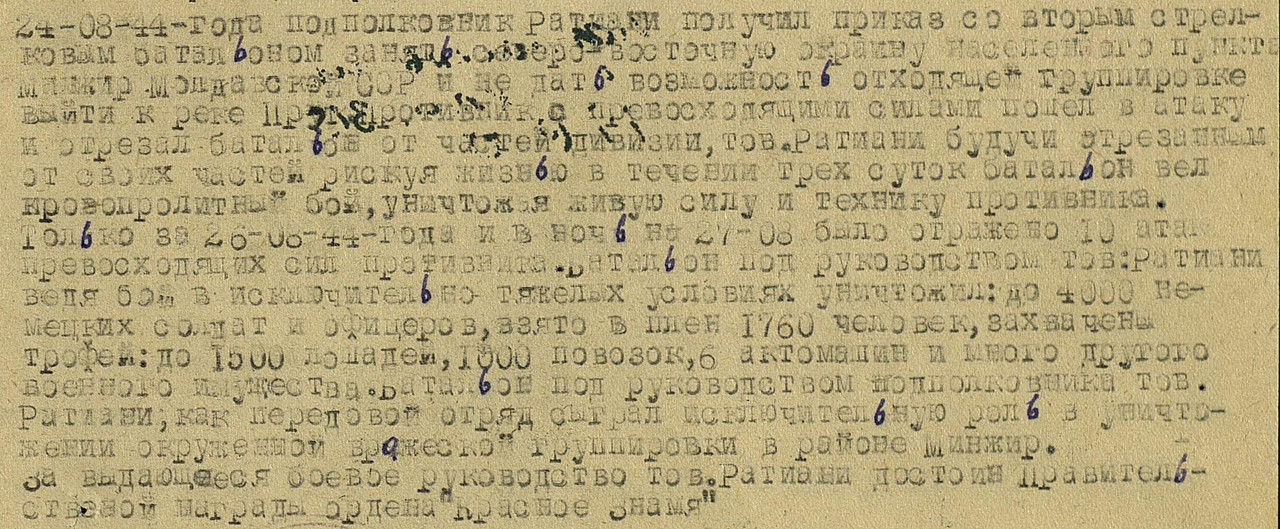 24-08-44-года подполковник Ратиани получил приказ со вторым стрел-
ковым батальоном занять северо-восточную окраину населенного пункта
Минжир Молдавской ССР и не дать возможность отходящей группировке
выйти к реке Прут. Противник с превосходящими силами пошел в атаку
и отрезал батальон от частей дивизии, тов.Ратиани будучи отрезанным
от своих частей рискуя жизнью в течении трех суток батальон вел
кровопролитный бой, уничтожая живую силу и технику противника.
Только за 26-08-44-года и в ночь на 27-08 было отражено 10 атак
превосходящих сил противника.Батальон под руководством тов:Ратиани
ведя бой в исключительно тяжелых условиях уничтожил: до 4000 не-
мецких солдат и офицеров, взято в плен 1760 человек, захвачены
трофеи: до 1500 лошадей, 1000 повозок, 6 актомашин и много другого
военного имущества.Батальон под руководством подполковника тов.
Ратиани, как передовой отряд сыграл исключительную роль в уничто-
жении окруженной вражеской группировки в районе Минжир.
За выдающееся боевое руководство тов.Ратиани достоин Правитель-
ственой награды ордена "Красное Знамя"